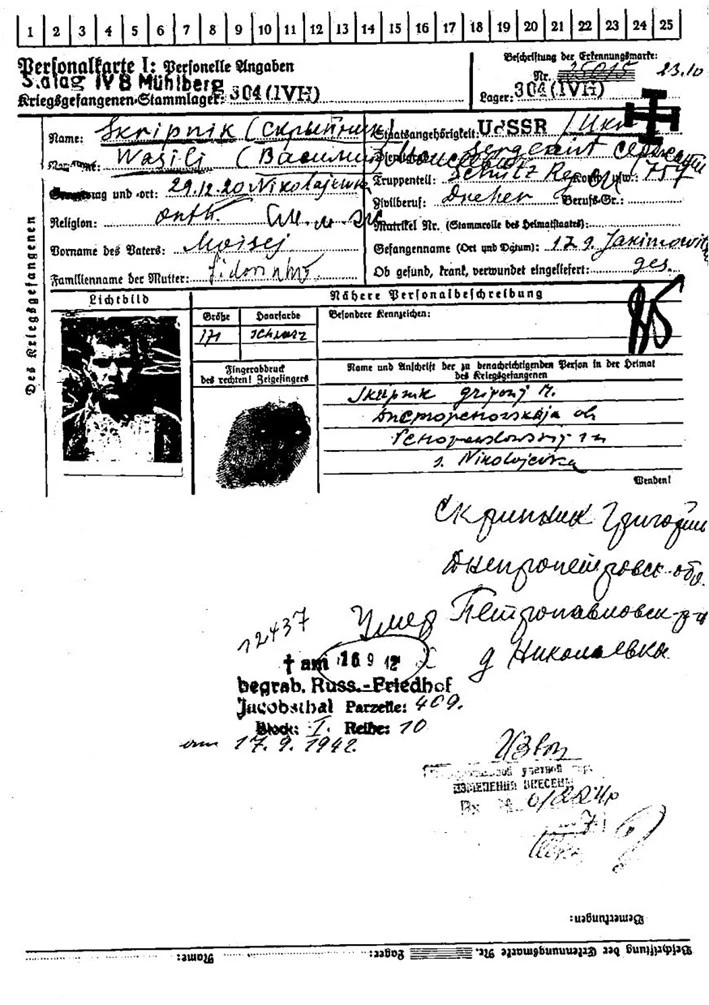 1 2 3 4 5 6 7 8 9 10 11 12 13 14 15 16 17 18 19 20 21 22 23 24 25
Personalkarte I: Personelle Angaben
Stalag IV B Mühlberg
Kriegsgefangenen-Stammlager: 304 (IVH)
Beschriftung der Erkennungsmarke:
Nr. 23.10
Lager: 304 (IVH)
Des Kriegsgefangenen
Name: Skripnik (Скрыпник)
Staatsangehörigkeit: UdSSR
Wasili (Василий
Sergeant
Truppenteil: Schütz Reg. 757
und -ort: 29.12.20 Nikolajewka
Zivilberuf: Dreher Berufs-Gr.:
Religion: orth.
Matrikel Nr. (Stammrolle des Heimatstaates):
Vorname des Vaters: Moisej
Gefangenname (Ort und Datum): 17.9.
Familienname der Mutter:
Ob gesund, krank, verwundet eingeliefert: ges.
Lichtbild
Nähere Personalbeschreibung
Größe
Haarfarbe
Besondere Kennzeichen:
171
schwarz
Fingerabdruck
des rechten! Zeigefingers
Name und Anschrift der zu benachrichtigenden Person in der Heimat
des Kriegsgefangenen
Skripnik Grigorij M.
s. Nikolajewka
Wenden!
Скрипник Григорий
Днепропетровск обл.
Умер Петропавловск р-н
д Николаевка
12437
† am 16 9 42
begrab. Russ.-Friedhof
Jacobsthal Parzelle: 409.
Block: I. Reihe: 10
am 17. 9. 1942.
учетной
ИЗМЕНЕНИЯ ВНЕСЕНЫ
Bemerkungen:
Beschriftung der Erkennungsmarke Nr. Lager: Name: